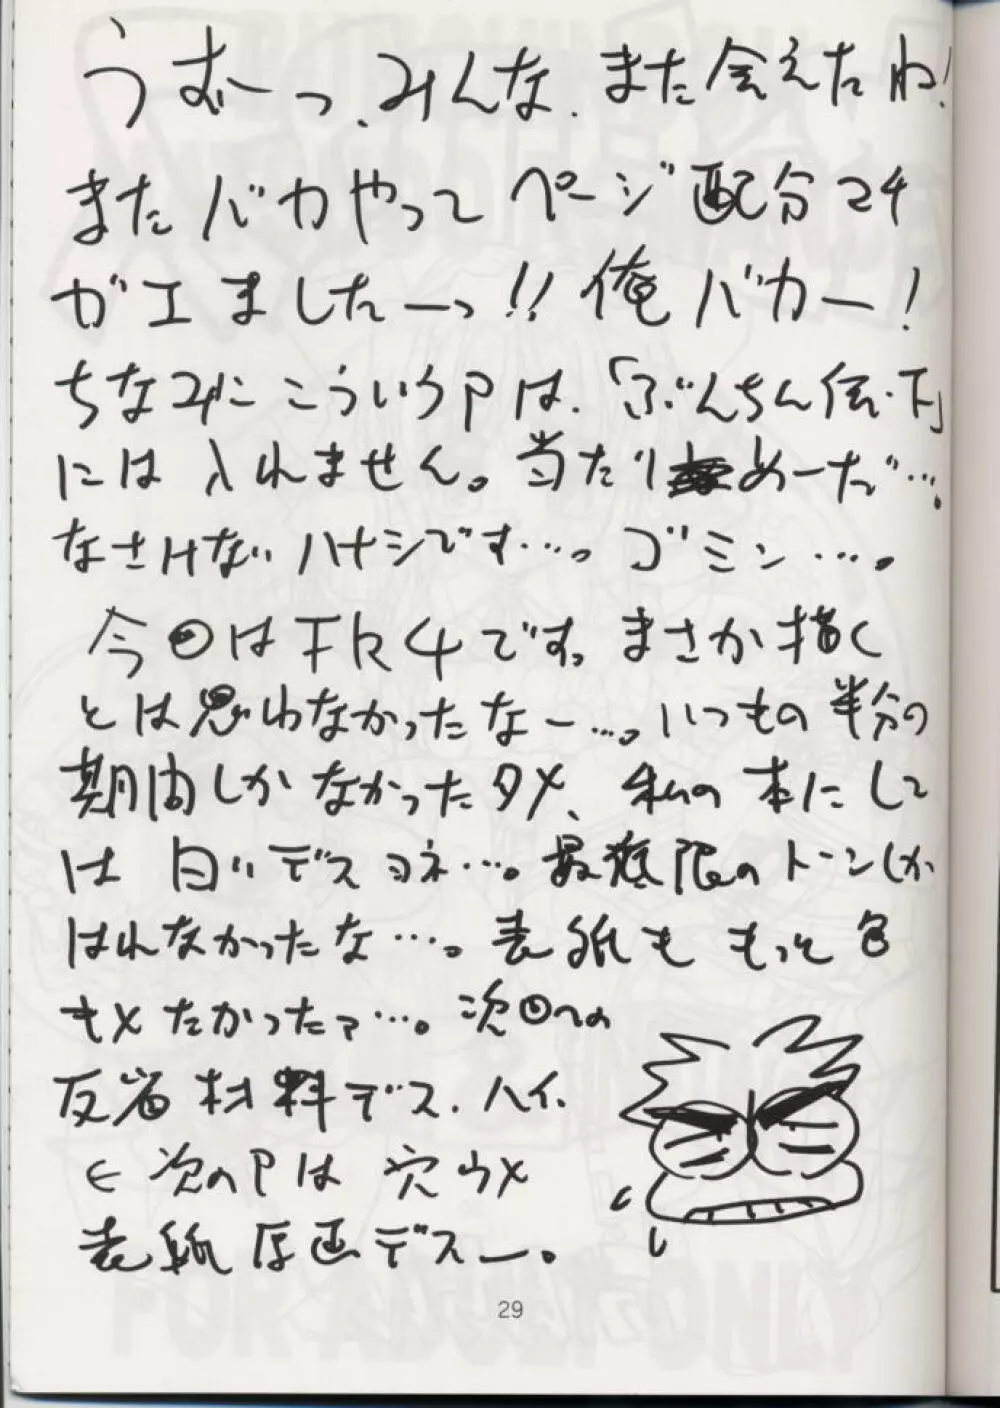 うむーっ、みんな、また会えたね!
またバカやってページ配分マチ
ガエましたーっ!!俺バカー!
ちなみにこういうPは、「ぶんちん伝・下」
には入れません。当たりめーだ…。
なさけないハナシです…。ゴミン…。
今回は下R4です。まさか描く
とは思わなかったなー…。いつもの半分の
期間しかなかったタメ、私の本にして
は白いデスヨネ…。最低限のトーンしか
はれなかったな…。表紙ももっと色
キメたかったァ…。次回への
反省材料デス、ハイ、
← 次のPは穴ウメ
表紙原画デスー。
29